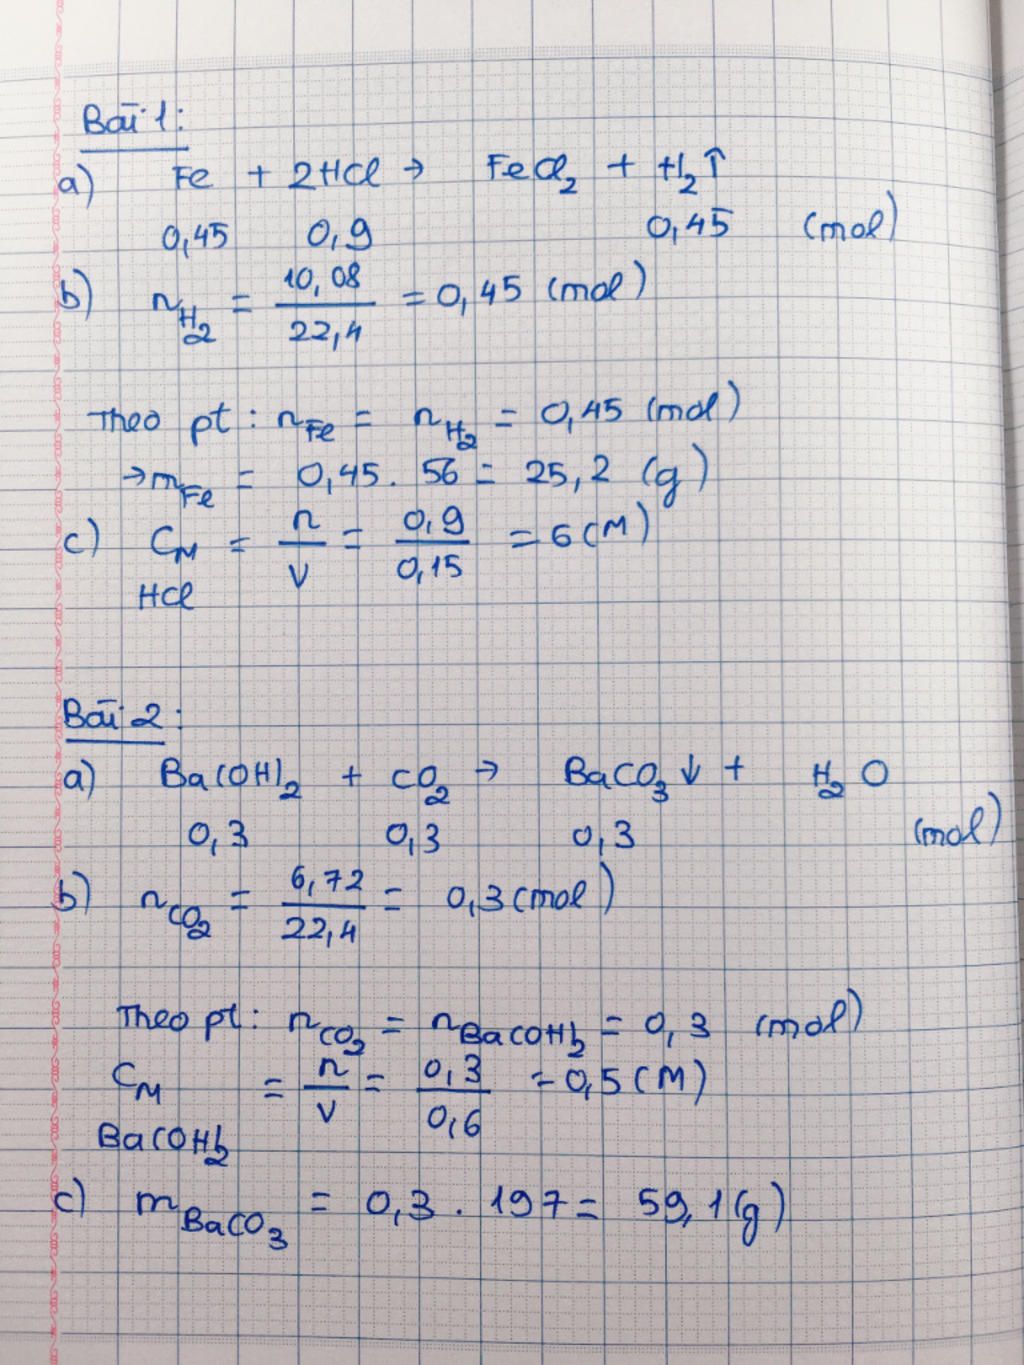 Bài 1:
a) Fe + 2HCl → FeCl₂ + H₂↑
0,45 0,9 0,45 (mol)
b) n_H₂ = 10,08/22,4 = 0,45 (mol)
Theo pt: n_Fe = n_H₂ = 0,45 (mol)
→ m_Fe = 0,45 . 56 = 25,2 (g)
c) C_M HCl = n/V = 0,9/0,15 = 6 (M)
Bài 2:
a) Ba(OH)₂ + CO₂ → BaCO₃↓ + H₂O
0,3 0,3 0,3 (mol)
b) n_CO₂ = 6,72/22,4 = 0,3 (mol)
Theo pt: n_CO₂ = n_Ba(OH)₂ = 0,3 (mol)
C_M Ba(OH)₂ = n/V = 0,3/0,6 = 0,5 (M)
c) m_BaCO₃ = 0,3 . 197 = 59,1 (g)